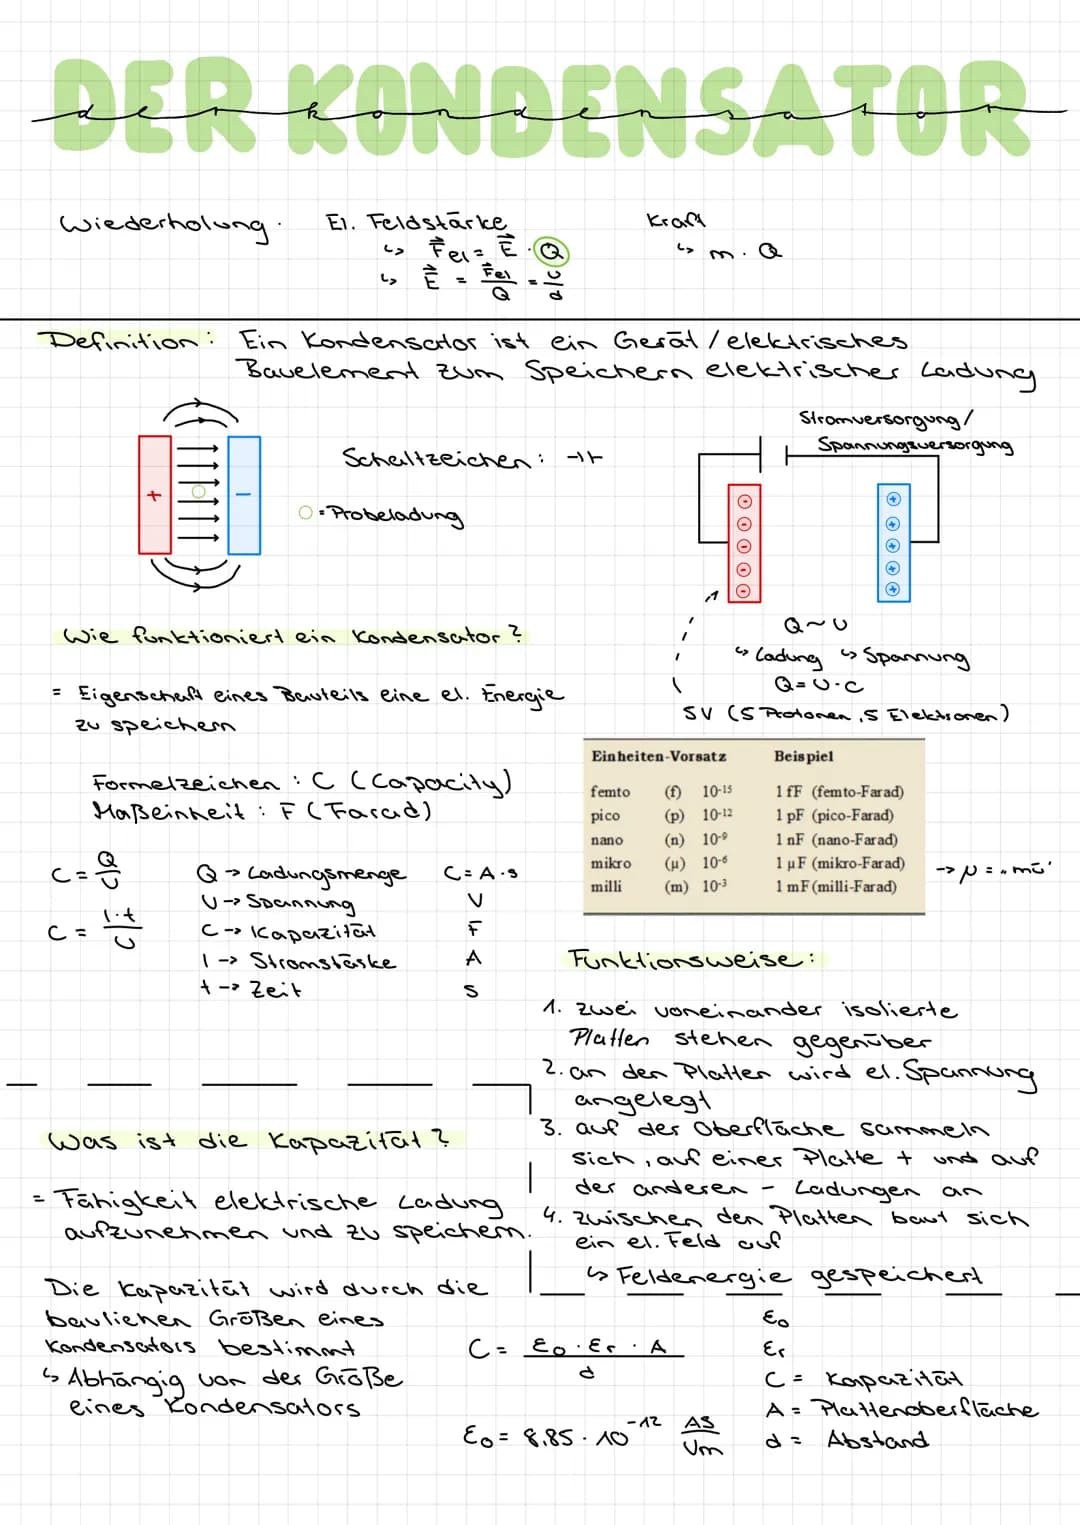 DER KONDENSATOR
der kondensator
Wiederholung: El. Feldstärke
↳ F⃗el = E⃗ · Q
↳ E⃗ = F⃗el/Q = U/d
Kraft
↳ m · Q
Definition: Ein Kondensator ist ein Gerät / elektrisches
Bauelement zum Speichern elektrischer Ladung
+ -
Schaltzeichen: ⊣⊢
O = Probeladung
Stromversorgung/
Spannungsversorgung
- - - - -
+ + + + +
Q ~ U
↳ Ladung ↳ Spannung
Q = U · C
5V (5 Protonen, 5 Elektronen)
Wie funktioniert ein Kondensator?
= Eigenschaft eines Bauteils eine el. Energie
zu speichern
Formelzeichen: C (Capacity)
Maßeinheit: F (Farad)
C = Q/U
C = I·t/U
Q -> Ladungsmenge C = A·s
U -> Spannung V
C -> Kapazität F
I -> Stromstärke A
t -> Zeit s
Einheiten-Vorsatz Beispiel
femto (f) 10-15 1 fF (femto-Farad)
pico (p) 10-12 1 pF (pico-Farad)
nano (n) 10-9 1 nF (nano-Farad)
mikro (µ) 10-6 1 µF (mikro-Farad)
milli (m) 10-3 1 mF (milli-Farad)
-> µ = „mü'
Funktionsweise:
1. zwei voneinander isolierte
Platten stehen gegenüber
2. an den Platten wird el. Spannung
angelegt
3. auf der Oberfläche sammeln
sich, auf einer Platte + und auf
der anderen - Ladungen an
4. zwischen den Platten baut sich
ein el. Feld auf
↳ Feldenergie gespeichert
Was ist die Kapazität?
= Fähigkeit elektrische Ladung
aufzunehmen und zu speichern.
Die Kapazität wird durch die
baulichen Größen eines
Kondensators bestimmt
↳ Abhängig von der Größe
eines Kondensators
C = ε0 · εr · A / d
ε0 = 8,85 · 10-12 AS/Vm
ε0
εr
C = Kapazität
A = Plattenoberfläche
d = Abstand